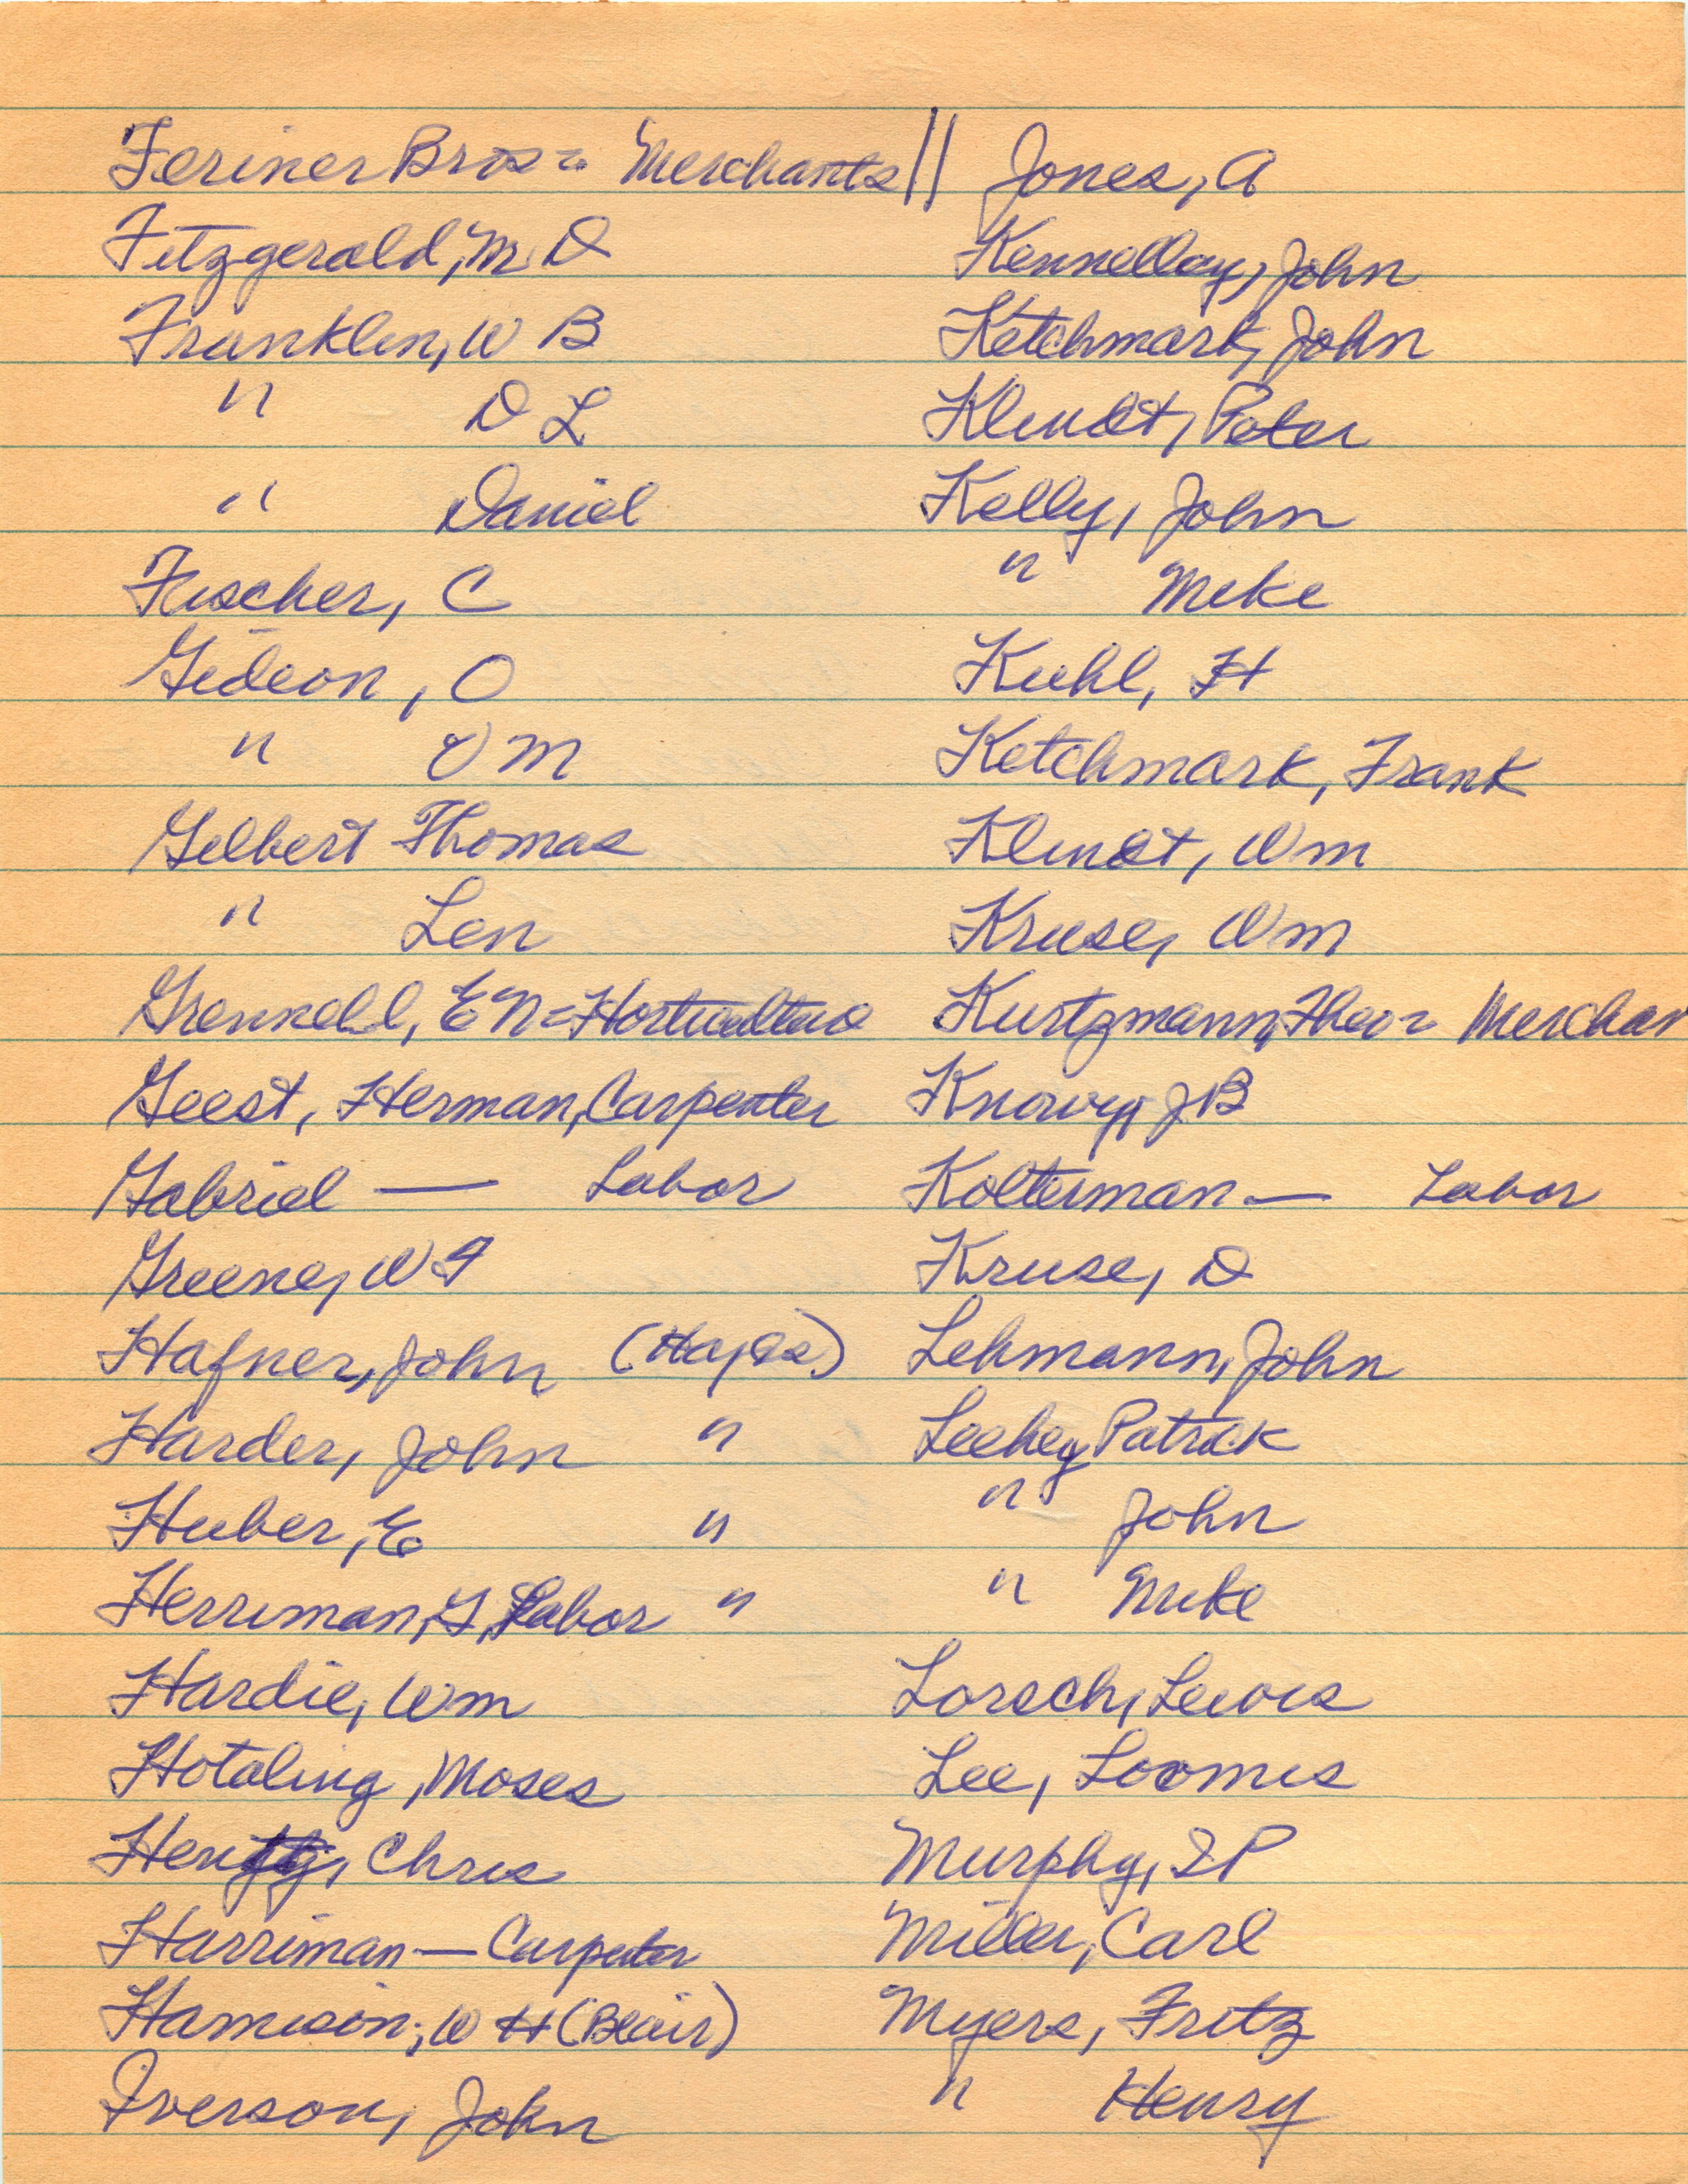 Feriner Bros = Merchants ||
Fitzgerald, M D
Franklin, W B
" D L
" Daniel
Fischer, C
Gideon, O
" O M
Gilbert Thomas
" Len
Grennell, E N = Horticulture
Geest, Herman, Carpenter
Gabriel — Labor
Greene, W F
Hafner, John (Hayes)
Harder, John "
Huber, E "
Herriman, G, Labor "
Hardie, Wm
Hotaling, Moses
Chris
Harriman — Carpenter
Hamison, W H (Blair)
Iverson, John
Jones, A
Kennelley, John
Ketchmark, John
Klindt, Peter
Kelly, John
" Mike
Kuhl, H
Ketchmark, Frank
Klindt, Wm
Kruse, Wm
Kurtzmann, Theo = Merchan
Knovy, J B
Kolterman — Labor
Kruse, D
Lehmann, John
Leehey Patrick
" John
" Mike
Lorsch, Lewis
Lee, Loomis
Murphy, S P
Miller, Carl
Myers, Fritz
" Henry